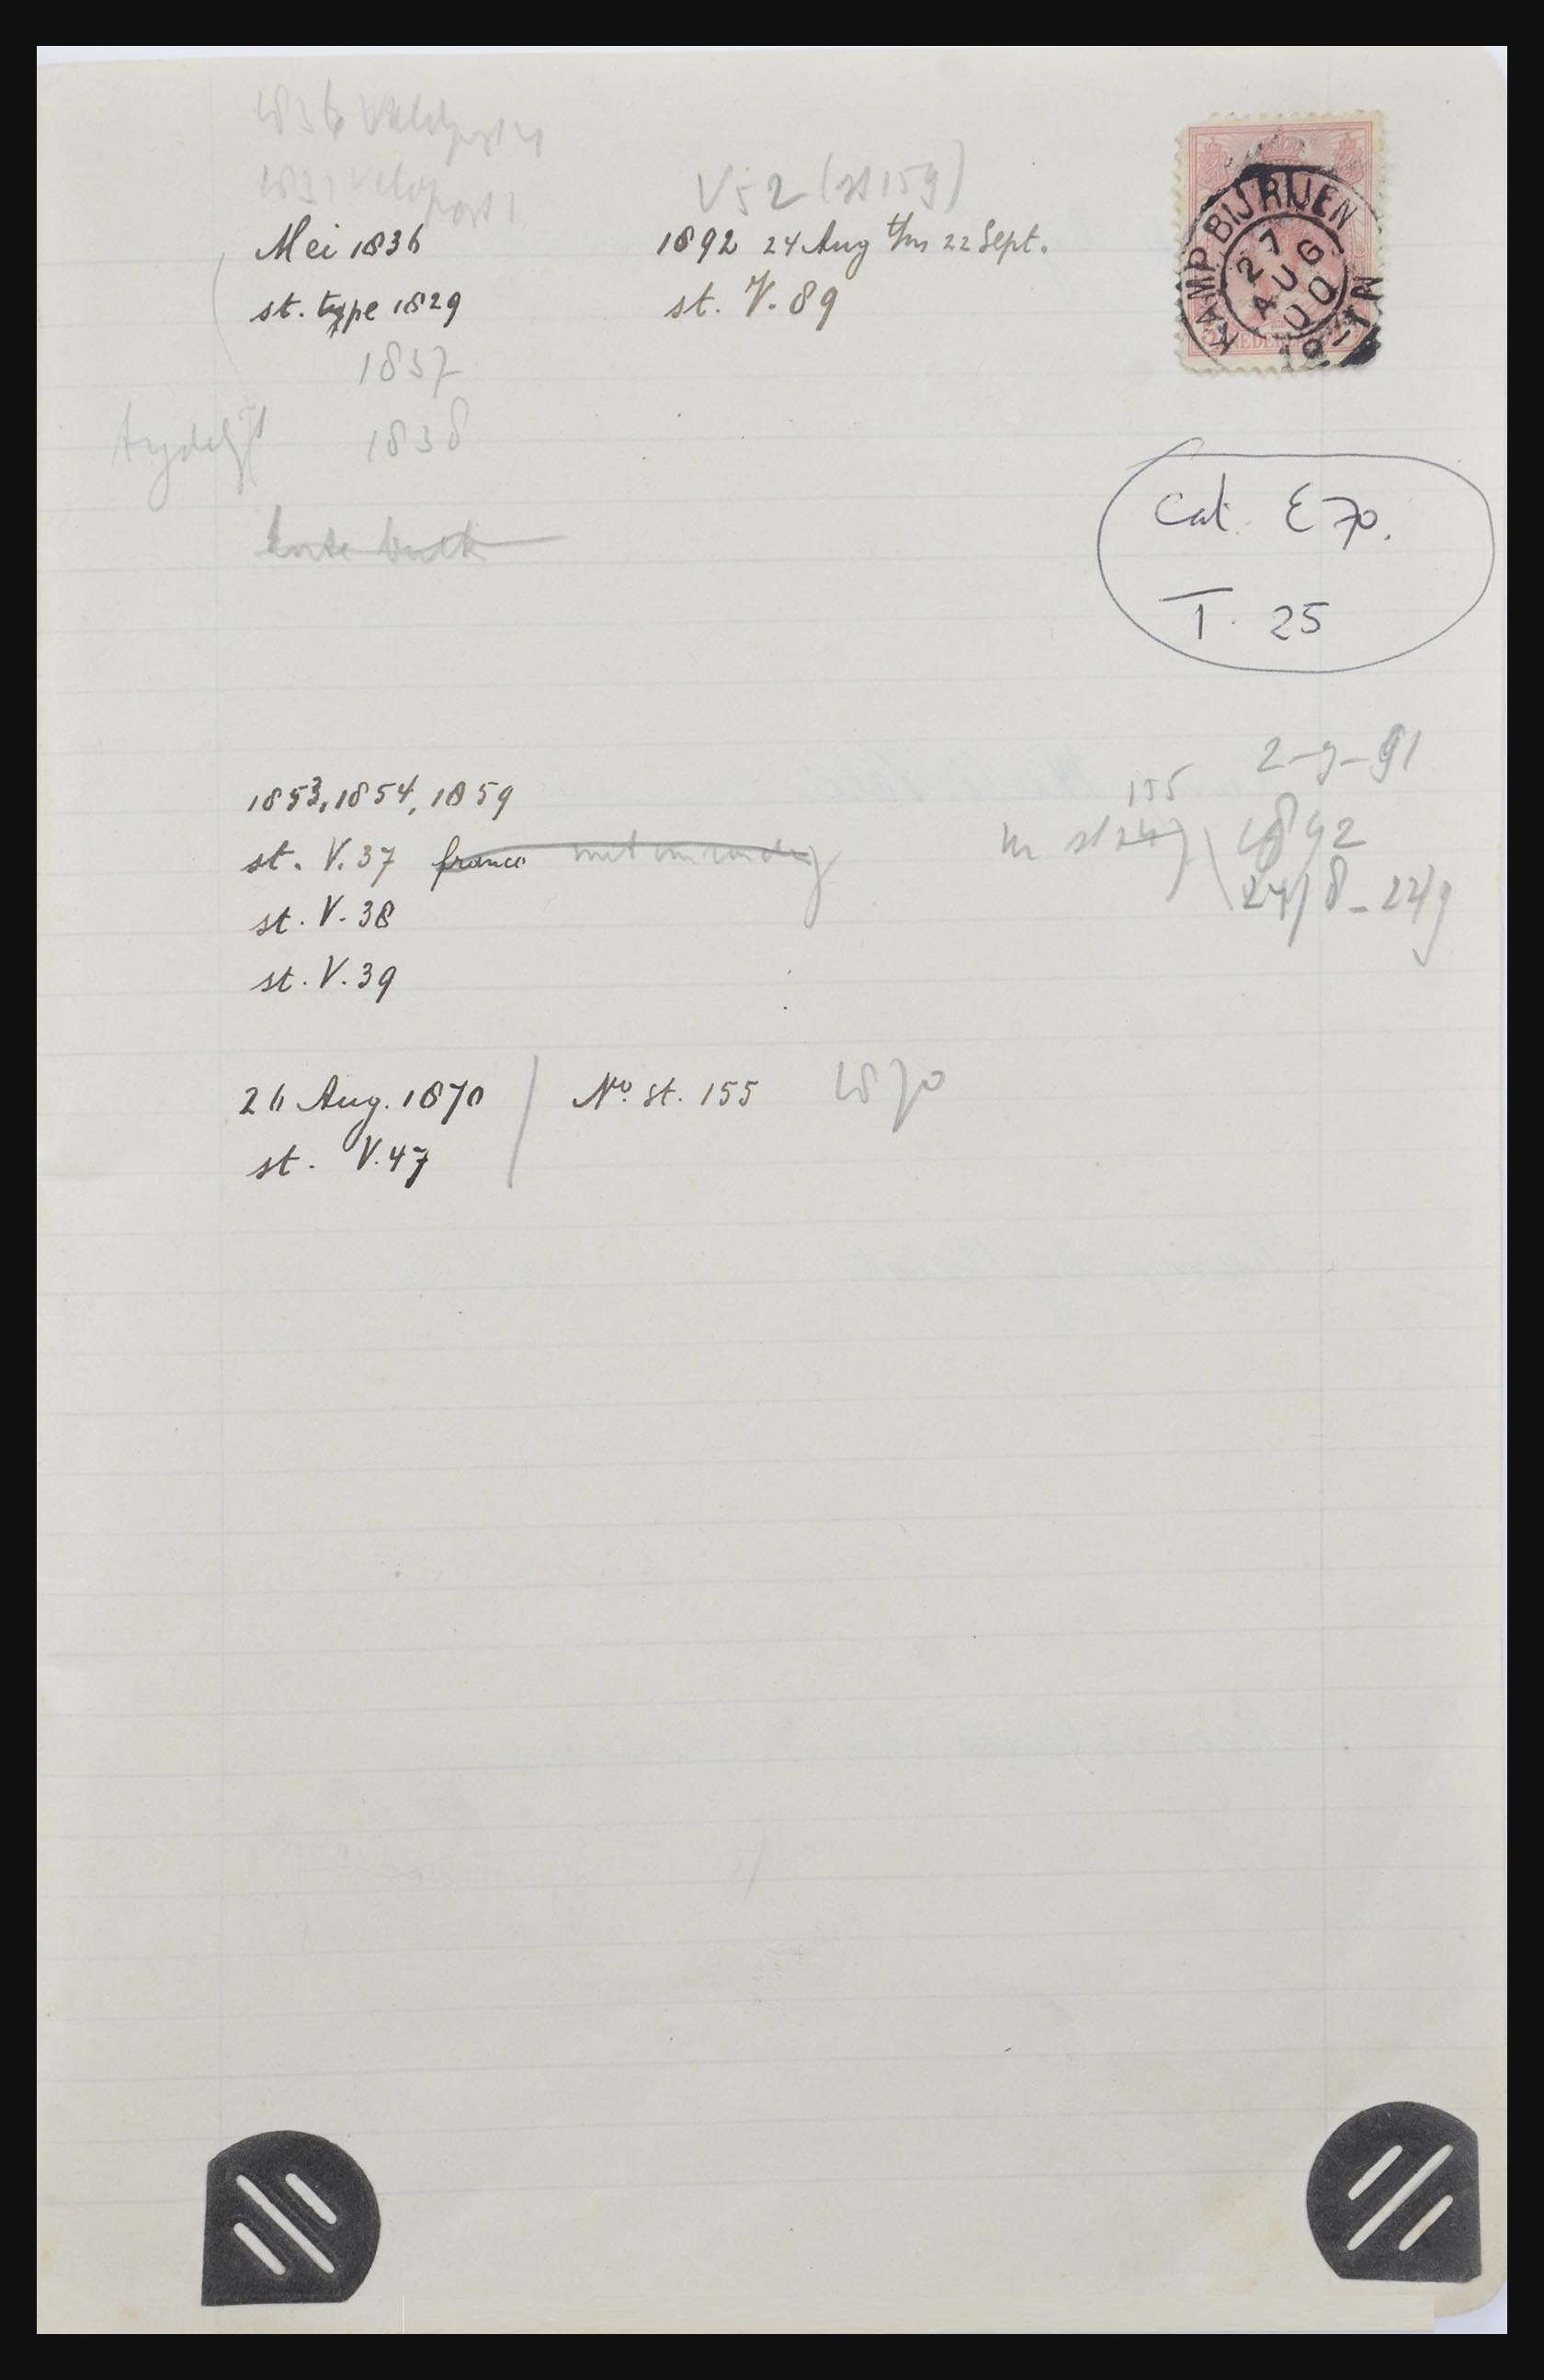 1836 Veldpost
1837 Veldpost 1
V52 (st 159)
Mei 1836
st. type 1829
1837
1838
1892 24 Aug t/m 22 Sept.
st. V. 89
KAMP BIJ RIJEN
27
AUG
00
NEDER
Cat. E 70.
T. 25
2-9-91
155
1853, 1854, 1859
st. V. 37 franco
st. V. 38
st. V. 39
1892
24/8 - 22/9
26 Aug. 1870
st. V. 47
No. st. 155
1870